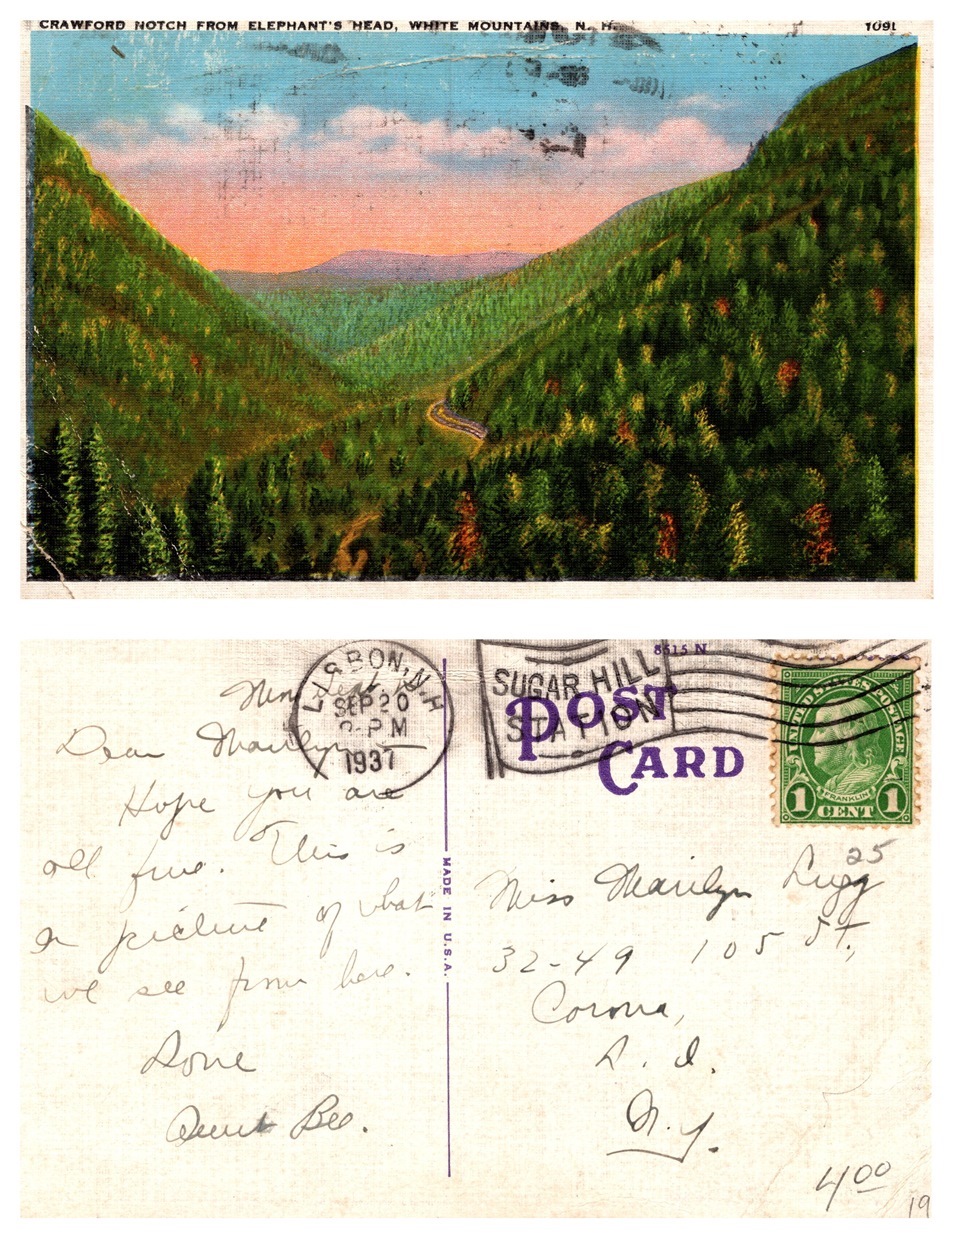 CRAWFORD NOTCH FROM ELEPHANT'S HEAD, WHITE MOUNTAINS, N. H. 1091
8615 N
LISBON, N.H.
SEP 20
PM
1937
SUGAR HILL
STATION
POST
CARD
UNITED STATES POSTAGE
FRANKLIN
1 CENT 1
Dear Marilyn —
Hope you are
all fine. This is
a picture of what
we see from here.
Love
Aunt Bee.
MADE IN U.S.A.
25
Miss Marilyn Lugg
32-49 105 St.,
Corona,
L. I.
N.Y.
4 00
19